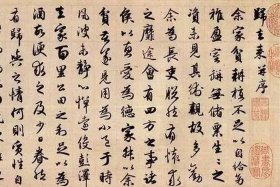 歸去來并序
余家貧耕植不足以自給幼
稚盈室缾無儲粟生生之
資未見其術親故多勸
余為長吏脫然有懷求
之靡途會有四方之事諸
侯以惠愛為德家叔以余
貧苦遂見用為小邑于時
風波未靜心憚遠役彭澤
去家百里公田之利足以為
酒故便求之及少日眷然
有歸與之情何則質性自